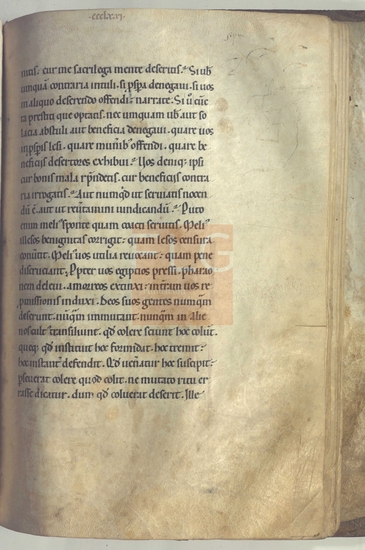 ccclxvi
nitis. cur me sacrilega mente deseritis. Si uob
umquā contraria intuli. si pspa denegaui. si uos
in aliquo deserendo offendi: narrate. Si ū cūc
ta prestiti que optatis. nec umquam uob aut so
lacia abstuli aut beneficia denegaui. quare uos
in pspis lesi. quare munib offendi. quare be
neficiis desertores exhibui. Uos deniq; ipsi
cur bonis mala rpndetis. cur beneficiis contra
ria irrogatis. Aut numqd ut seruiatis nocen
dū ē. aut ut reuertamini uindicandū. Puto
enim meli sponte quam coacti seruitis. Meli
illesos benignitas corrigit: quam lesos censura
conuertit. Meli uos utilia reuocant: quam pene
discruciant; Ppter uos egiptios pressi. pharao
nem deleui. amorreos extinxi. in terram uos re
pmissionis induxi. Deos suos gentes numqm
deserunt. nuqm inmutant. nunqm in alie
nos cult transiliunt. qd colere sciunt hoc colūt.
queq; qd instituit hoc formidat. hoc tremit.
hoc instant defendit. Qd uenatur hoc suscipit.
pseuerat colere quod colit. ne mutato ritu er
rasse dicatur. dum qd coluerat deserit. Ille